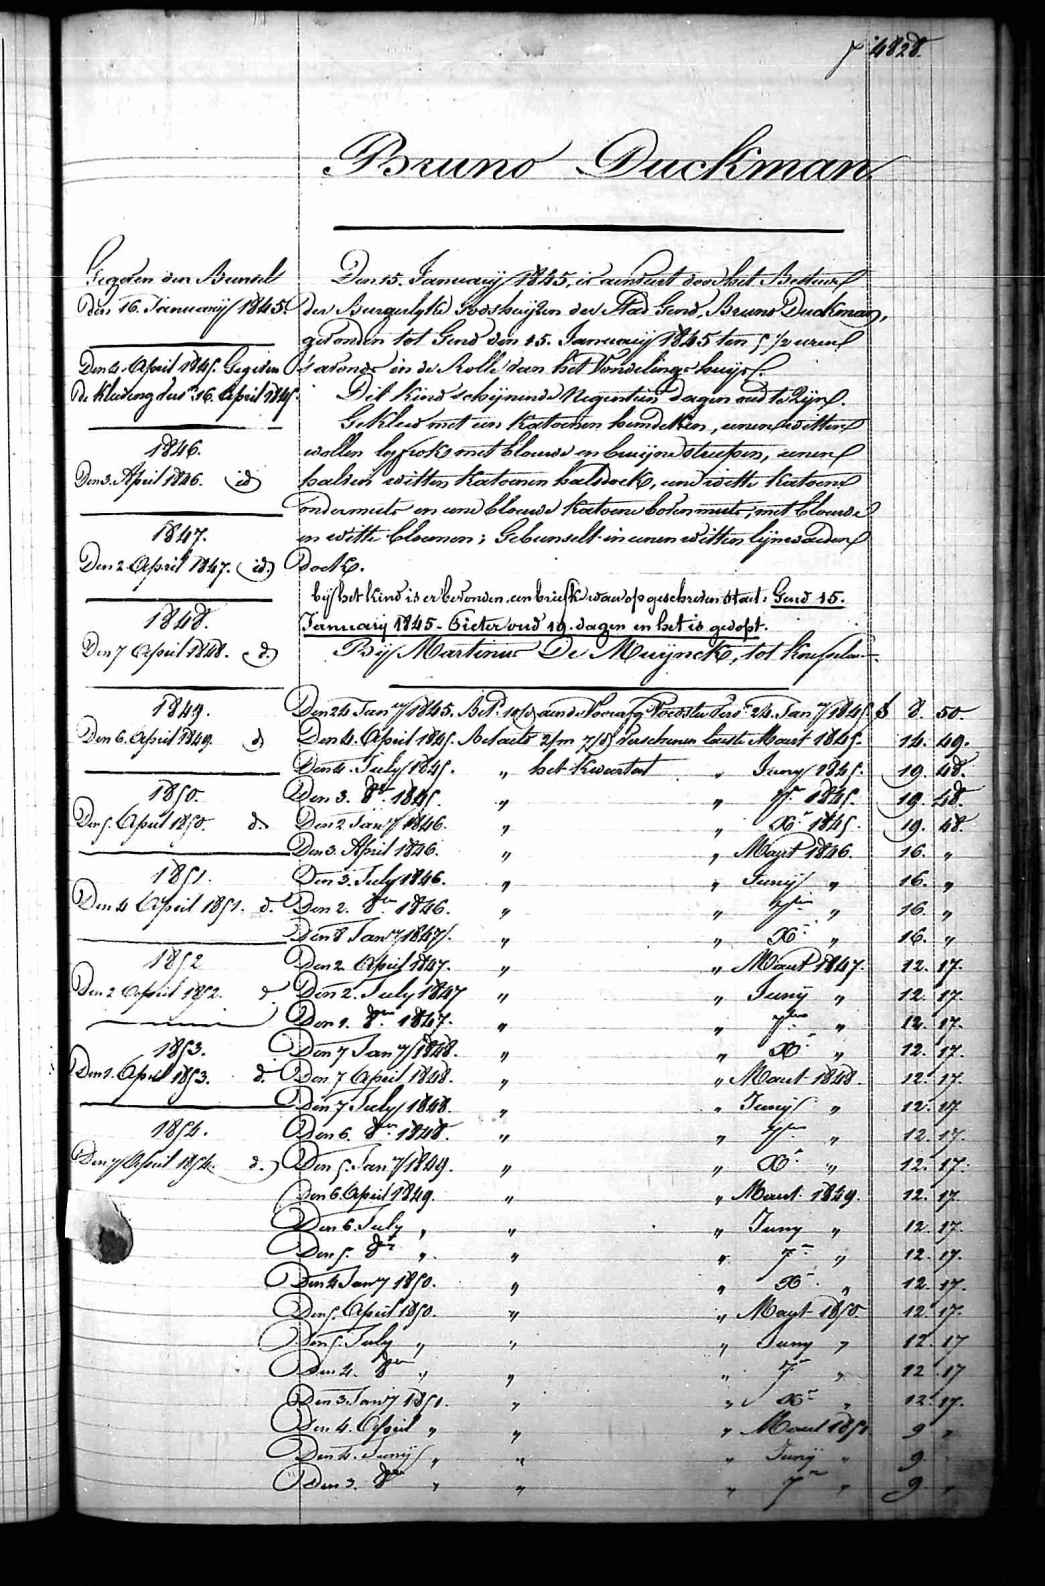 4828.
Bruno Duckman
Gegeven den Bunsel
den 16. Januarij 1845.
Den 4. April 1845. Gegeven
de kleeding 16. April 1845.
1846.
Den 3. April 1846. id
1847.
Den 2 April 1847. id.
1848.
Den 7 April 1848. d.
1849.
Den 6. April 1849. d
1850.
Den 5. April 1850. d.
1851.
Den 4 April 1851. d.
1852
Den 2 April 1852. d.
1853.
Den 1. April 1853. d.
1854.
Den 7 April 1854. d.
Den 15. Januarij 1845, is aenveert door het Bestuur
der Burgerlyke Godshuijzen der Stad Gend, Bruno Duckman,
gevonden tot Gend den 15. Januarij 1845 ten 5 1/2 uren
's avonds in de Rolle van het Vondelinge huijs.
Dit kind schijnende Negentien dagen oud te zijn.
Gekleed met een katoenen hemdeken, eenen witten
wollen met blauwe en bruijne streepen, eenen
halven witten katoenen halsdoek, eene witte katoene
ondermuts en eene blauwe katoene bovenmuts, met blauwe
en witte bloemen; Gebunselt in eenen witten lijnwaeden
doek.
bij het kind is er bevonden een briefk waer op geschreven staet: Gend 15.
Januarij 1845 - Pieter oud 19. dagen en het is gedopt.
Bij Martinus De Muijnck, tot
Den 24 Jan.y 1845. Bet. aende Voorafg Voedster 24. Jan.y 1845 f 8. 50.
Den 4. April 1845. Betaelt 2/m 7/d Verschenen laeste Maart 1845. 14. 49.
Den 4. July 1845. " het kwartael " Juny 1845. 19. 48.
Den 3. 8.r 1845. " " 7.r 1845. 19. 48.
Den 2 Jan.y 1846. " " X.r 1845. 19. 48.
Den 3. April 1846. " " Maart 1846. 16. "
Den 3. July 1846. " " Junij " 16. "
Den 2. 8.er 1846. " " 7.er " 16. "
Den 8 Jan.y 1847. " " X.r " 16. "
Den 2 April 1847. " " Maart 1847. 12. 17.
Den 2. July 1847 " " Junij " 12. 17.
Den 1. 8.er 1847. " " 7.er " 12. 17.
Den 7 Jan.y 1848. " " X.r " 12. 17.
Den 7 April 1848. " " Maart 1848. 12. 17.
Den 7 July 1848. " " Junij " 12. 17
Den 6. 8.er 1848. " " 7.er " 12. 17.
Den 5. Jan.y 1849. " " X.r " 12. 17.
Den 6. April 1849. " " Maart 1849. 12. 17.
Den 6. July " " " Juny " 12. 17.
Den 5. 8.r " " " 7.r " 12. 17.
Den 4 Jan.y 1850. " " X.r " 12. 17.
Den 5. April 1850. " " Maart 1850. 12. 17.
Den 5. July " " " Juny " 12. 17
Den 4. 8.er " " " 7.r " 12. 17
Den 3 Jan.y 1851. " " X.r " 12. 17.
Den 4. April " " " Maart 1851 9 "
Den 4. Junij " " " Junij " 9.
Den 3. 8.er " " " 7.r " 9. "